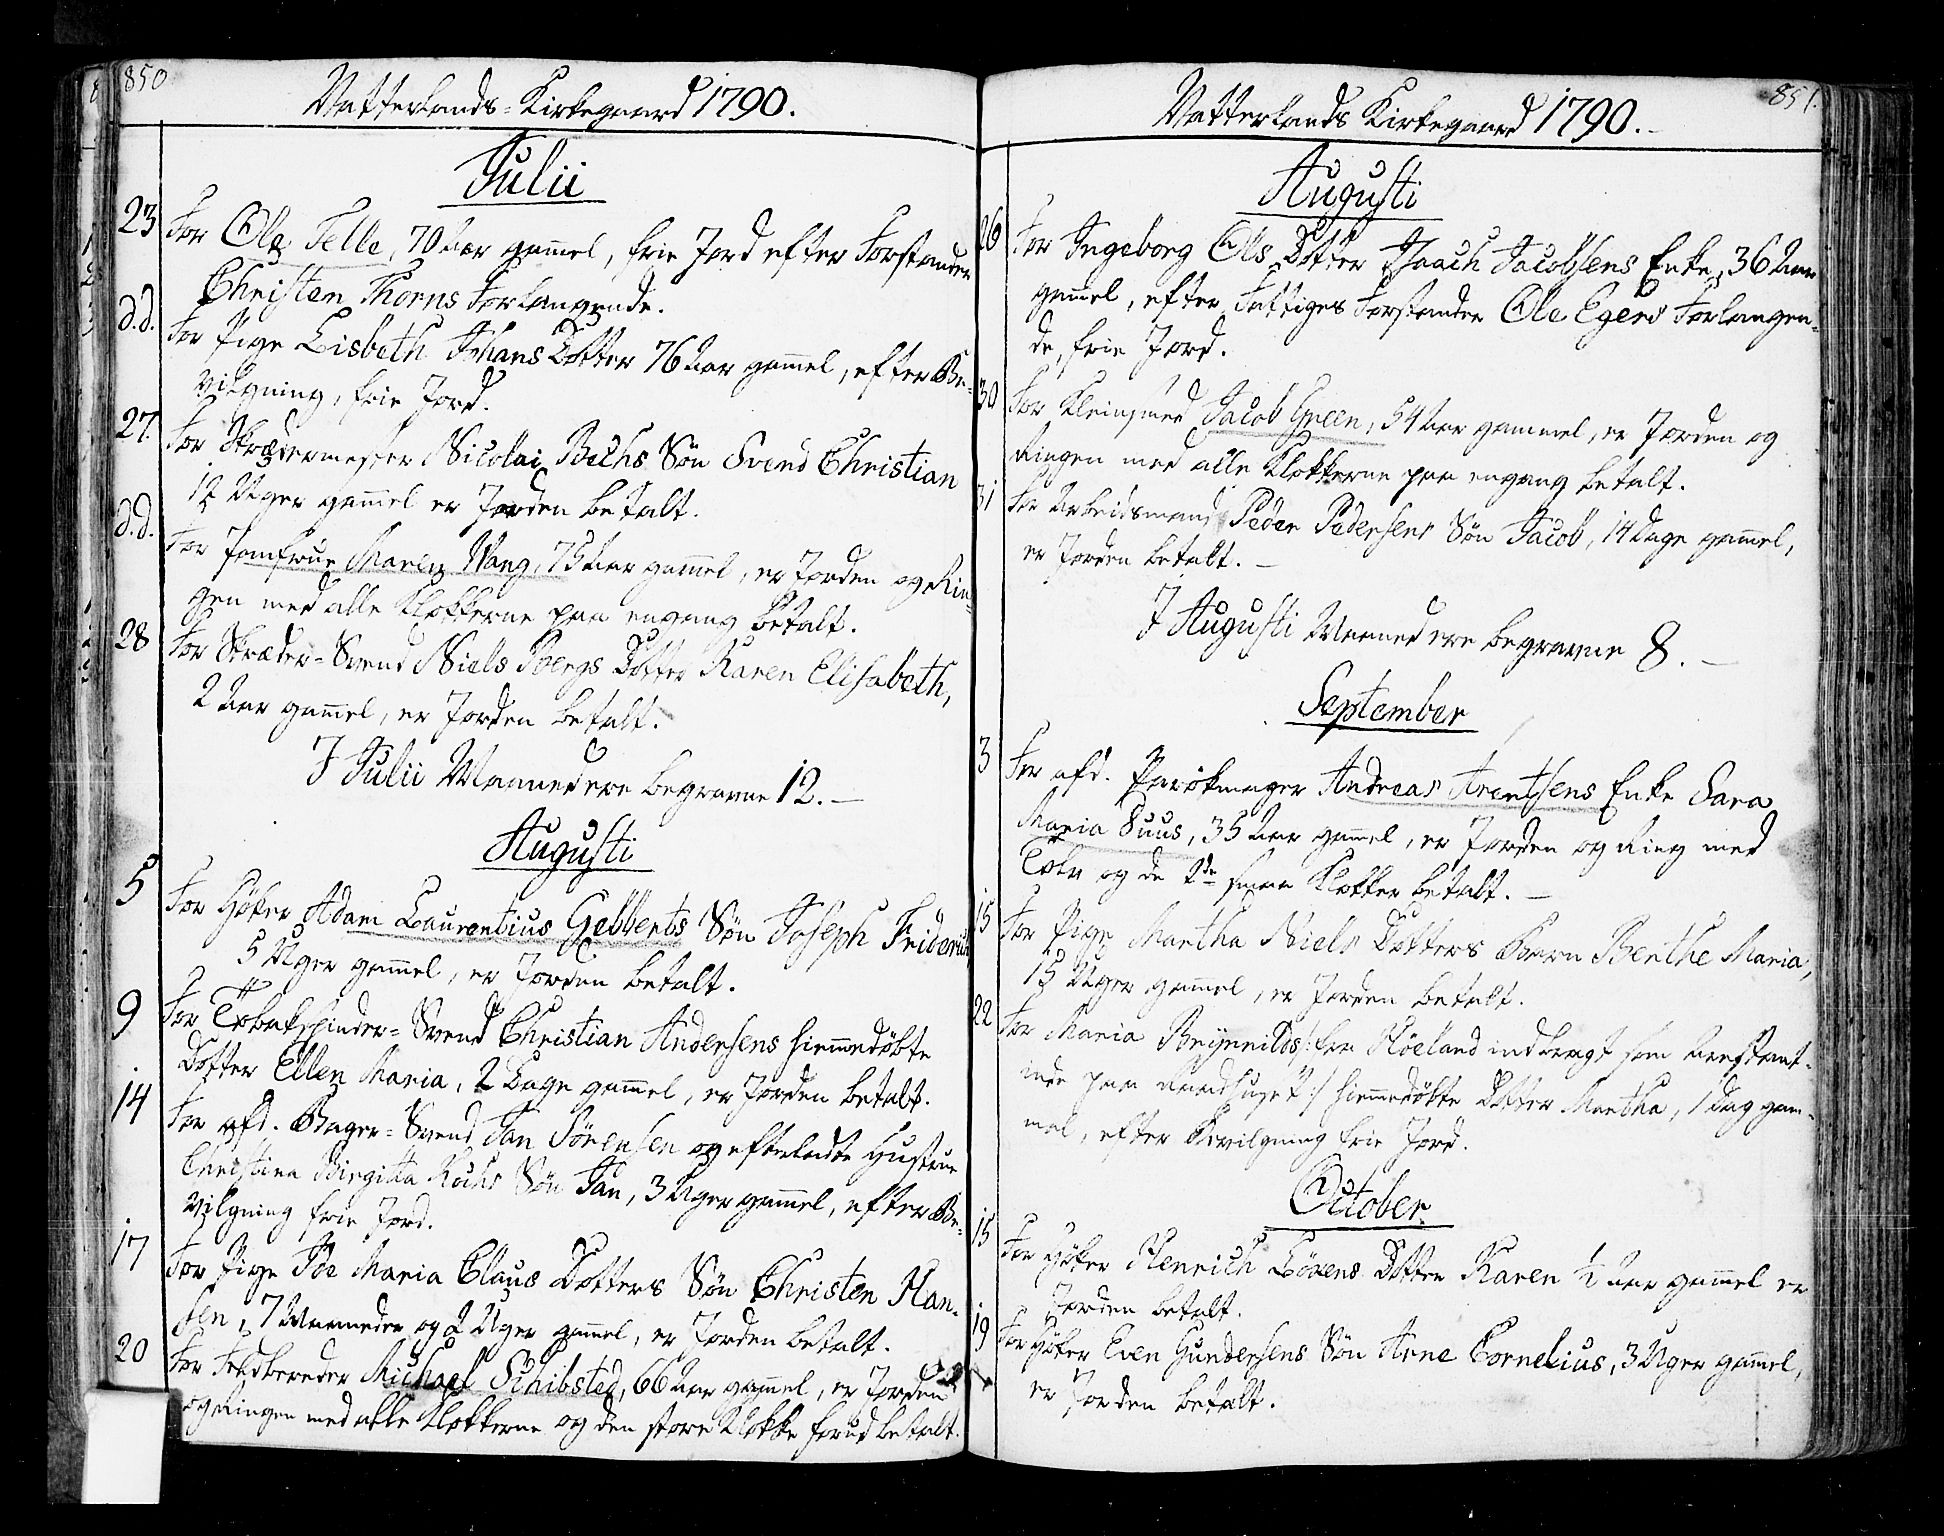 850
Vatterlands-Kirkegaard 1790.
Julii
23 For Ole Telle, 70 Aar gam̄el, frie Jord efter Forstander
Christen Thorns Forlangende.
d.d. For Pige Lisbeth Johans Dotter 76 Aar gam̄el, efter Be-
vilgning, frie Jord.
27. For Skrædermester Nicolai Bechs Søn Svend Christian
12 Uger gam̄el er Jorden betalt.
d.d. For Jomfrue Maren Wang, 75 Aar gam̄el, er Jorden og Rin-
gen med alle Klokkerne paa engang betalt.
28 For Skræder-Svend Niels Bergs Dotter Karen Elisabeth,
2 Aar gam̄el, er Jorden betalt.
I Julii Maaned ere begravne 12.
Augusti
5 For Høker Adam Laurentius Gebberts Søn Joseph Friderich
5 Uger gam̄el, er Jorden betalt.
9 For Tobakspinder-Svend Christian Andersens hiem̄edøbte
Dotter Ellen Maria, 2 Dage gam̄el, er Jorden betalt.
14 For afd. Bager-Svend Jan Sörensen og efterladte Hustrue
Christina Birgitta Kochs Søn Jan, 3 Uger gam̄el, efter Be-
vilgning frie Jord.
17 For Pige Ide Maria Claus Dotters Søn Christen Han-
sen, 7 Maaneder og 2 Uger gam̄el, er Jorden betalt.
20 For Feldbereder Michael Schibsted, 66 Aar gam̄el, er Jorden
og Ringen med alle Klokkerne og den store Klokke forud betalt.
851.
Vatterlands Kirkegaard 1790.
Augusti
26 For Ingeborg Ols Dotter Isaach Jacobsens Enke, 36 Aar
gam̄el, efter Fattiges Forstander Ole Egers Forlangen-
de, frie Jord.
30 For Kleinsmed Jacob Green, 54 Aar gammel, er Jorden og
Ringen med alle Klokkerne paa engang betalt.
31 For Arbeidsmand Peder Pedersens Søn Jacob, 14 Dage gam̄el,
er Jorden betalt.
I Augusti Maaned ere begravne 8.
September
3 For afd. Parükmager Andreas Arentsens Enke Sara
Maria Suus, 35 Aar gam̄el, er Jorden og Ring med
Tolv og de 2de smaa Klokker betalt.
15 For Pige Martha Niels Dotters Barn Berthe Maria,
15 Uger gam̄el, er Jorden betalt.
22 For Maria Brynnilds /: fra Høeland indbragt som Arrestant-
inde paa Raadhuset :/ hiem̄edøbte Dotter Martha, 1 Dag gam-
mel, efter Bevilgning frie Jord.
October
15 For Høker Henrich Lövens Dotter Karen ½ Aar gam̄el er
Jorden betalt.
19 For Høker Even Gundersens Søn Arne Cornelius, 3 Uger gam̄el,
er Jorden betalt.